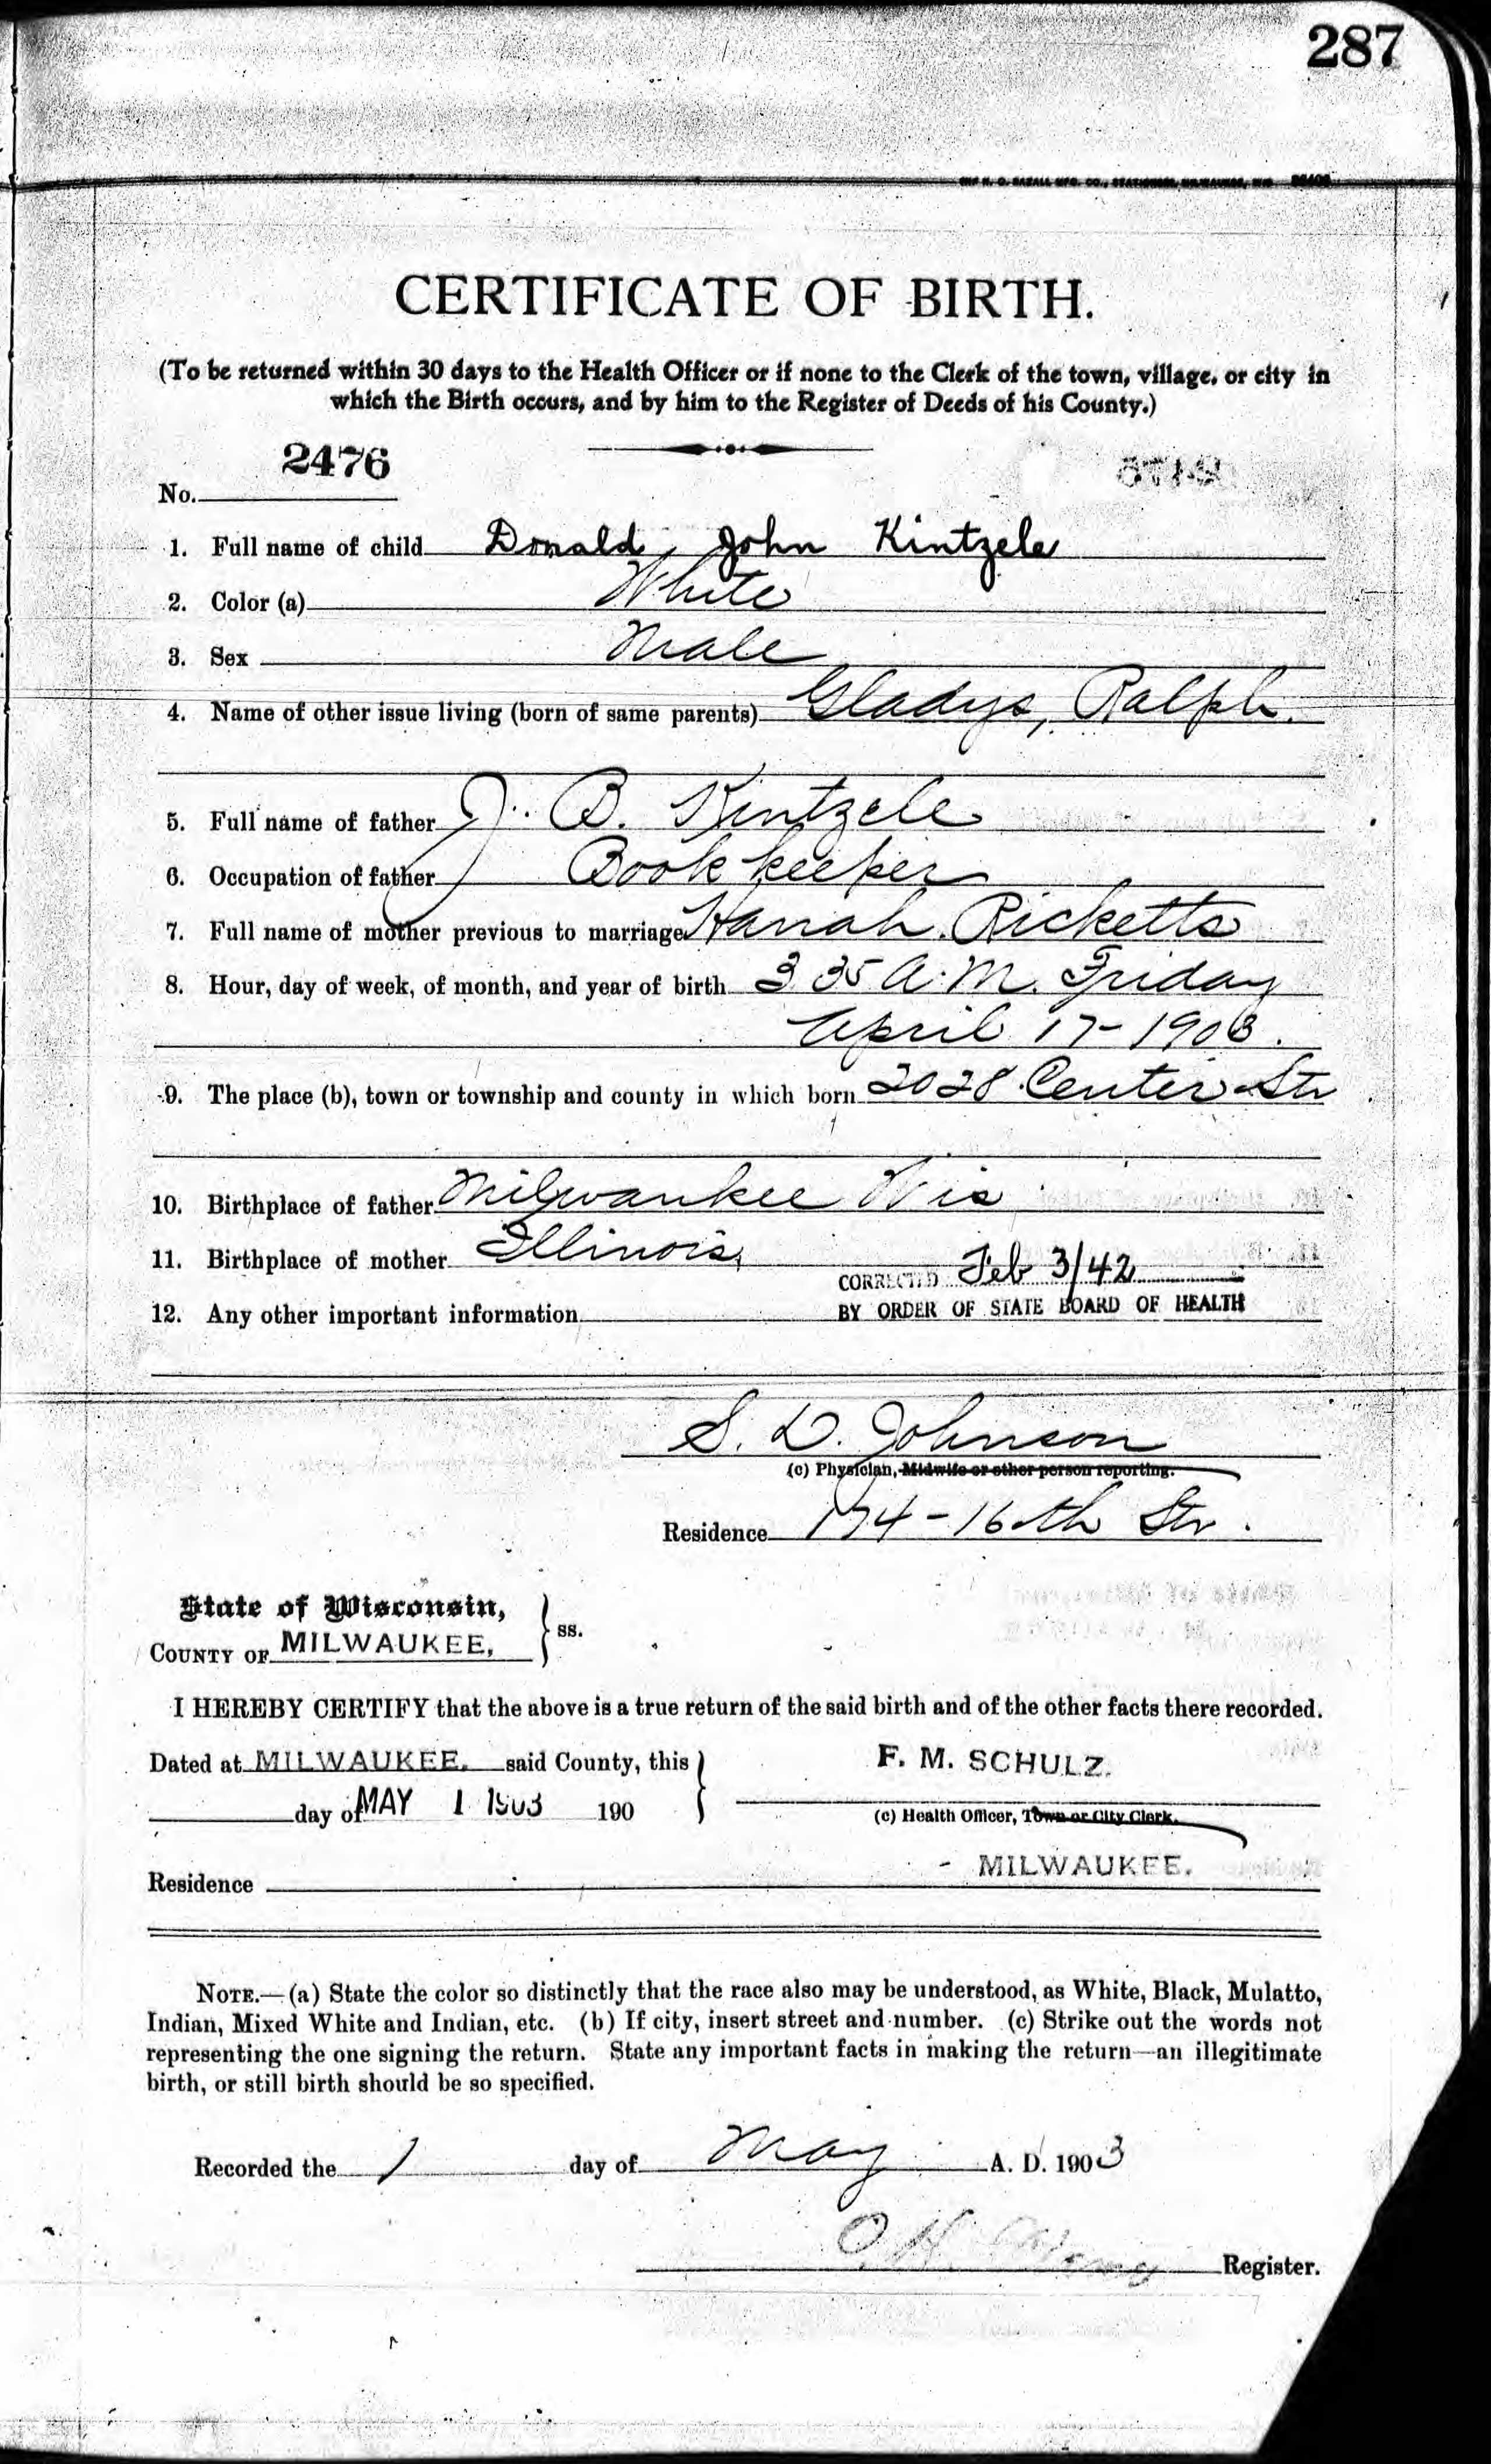 287
CERTIFICATE OF BIRTH.
(To be returned within 30 days to the Health Officer or if none to the Clerk of the town, village, or city in
which the Birth occurs, and by him to the Register of Deeds of his County.)
No. 2476
1. Full name of child Donald, John Kintzele
2. Color (a) White
3. Sex Male
4. Name of other issue living (born of same parents) Gladys, Ralph.
5. Full name of father J. B. Kintzele
6. Occupation of father Book keeper
7. Full name of mother previous to marriage Hannah Ricketts
8. Hour, day of week, of month, and year of birth 3 35 A.M. Friday
April 17-1903.
9. The place (b), town or township and county in which born 2028 Center Str
10. Birthplace of father Milwaukee Wis
11. Birthplace of mother Illinois,
CORRECTED Feb 3/42
12. Any other important information BY ORDER OF STATE BOARD OF HEALTH
S. D. Johnson
(c) Physician, Midwife or other person reporting.
Residence 174-16th Str.
State of Wisconsin,
COUNTY OF MILWAUKEE, } ss.
I HEREBY CERTIFY that the above is a true return of the said birth and of the other facts there recorded.
Dated at MILWAUKEE, said County, this F. M. SCHULZ.
day of MAY 1 1903 190 (c) Health Officer, Town or City Clerk.
Residence - MILWAUKEE.
NOTE.—(a) State the color so distinctly that the race also may be understood, as White, Black, Mulatto,
Indian, Mixed White and Indian, etc. (b) If city, insert street and number. (c) Strike out the words not
representing the one signing the return. State any important facts in making the return—an illegitimate
birth, or still birth should be so specified.
Recorded the 1 day of May A. D. 1903
O. H. Register.